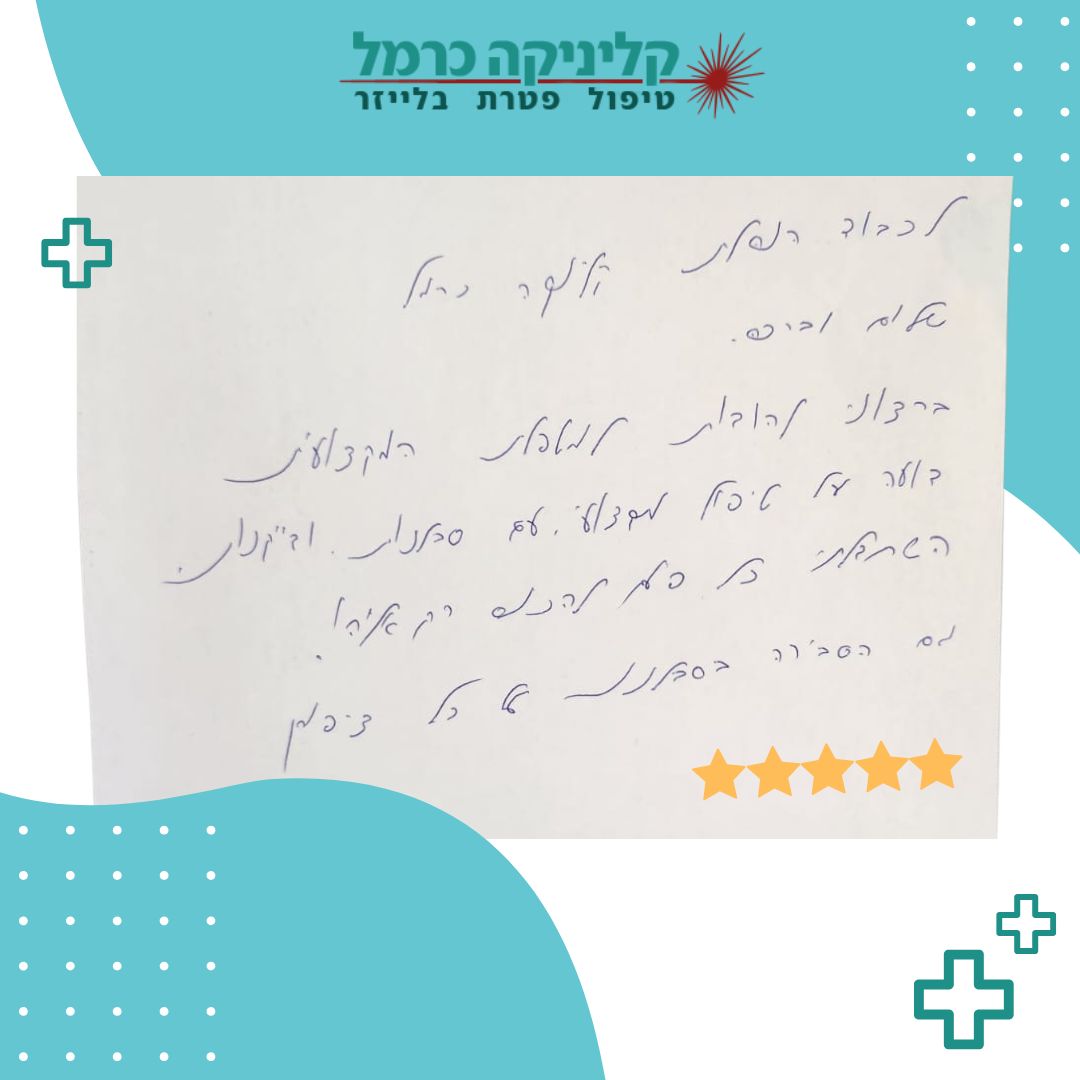 קליניקה כרמל
טיפול פטרת בלייזר
לכבוד הנהלת קליניקה כרמל
שלום וברכה.
ברצוני להודות למטפלת המקצועית
על טיפול מקצועי, עם סבלנות. ודייקנות.
השתדלתי כל פעם להכנס רק אליה!
גם הסבירה בסבלנות את כל